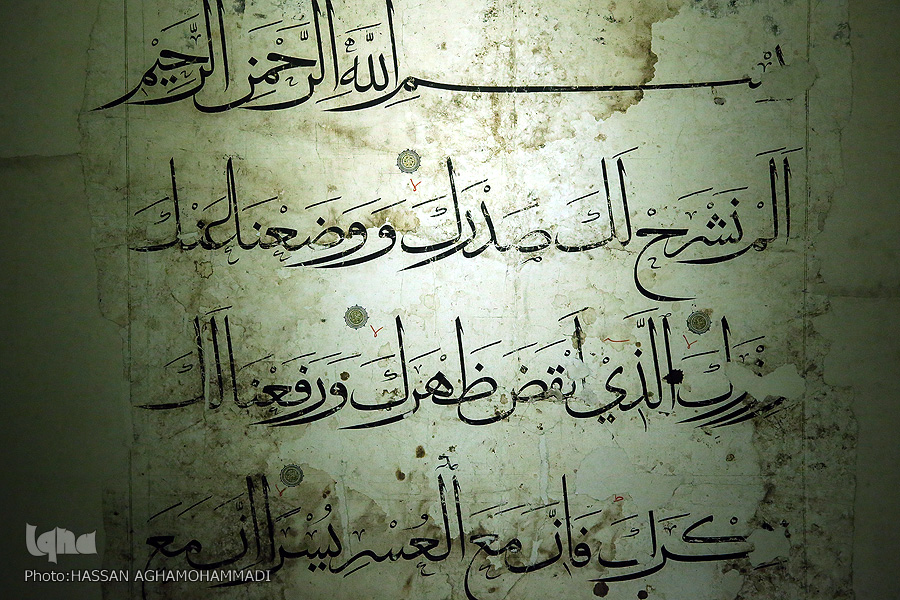 بسم الله الرحمن الرحيم
أَلَمْ نَشْرَحْ لَكَ صَدْرَكَ وَوَضَعْنَا عَنْكَ
وِزْرَكَ الَّذِي أَنْقَضَ ظَهْرَكَ وَرَفَعْنَا لَكَ
ذِكْرَكَ فَإِنَّ مَعَ الْعُسْرِ يُسْرًا إِنَّ مَعَ
iqna
Photo:HASSAN AGHAMOHAMMADI